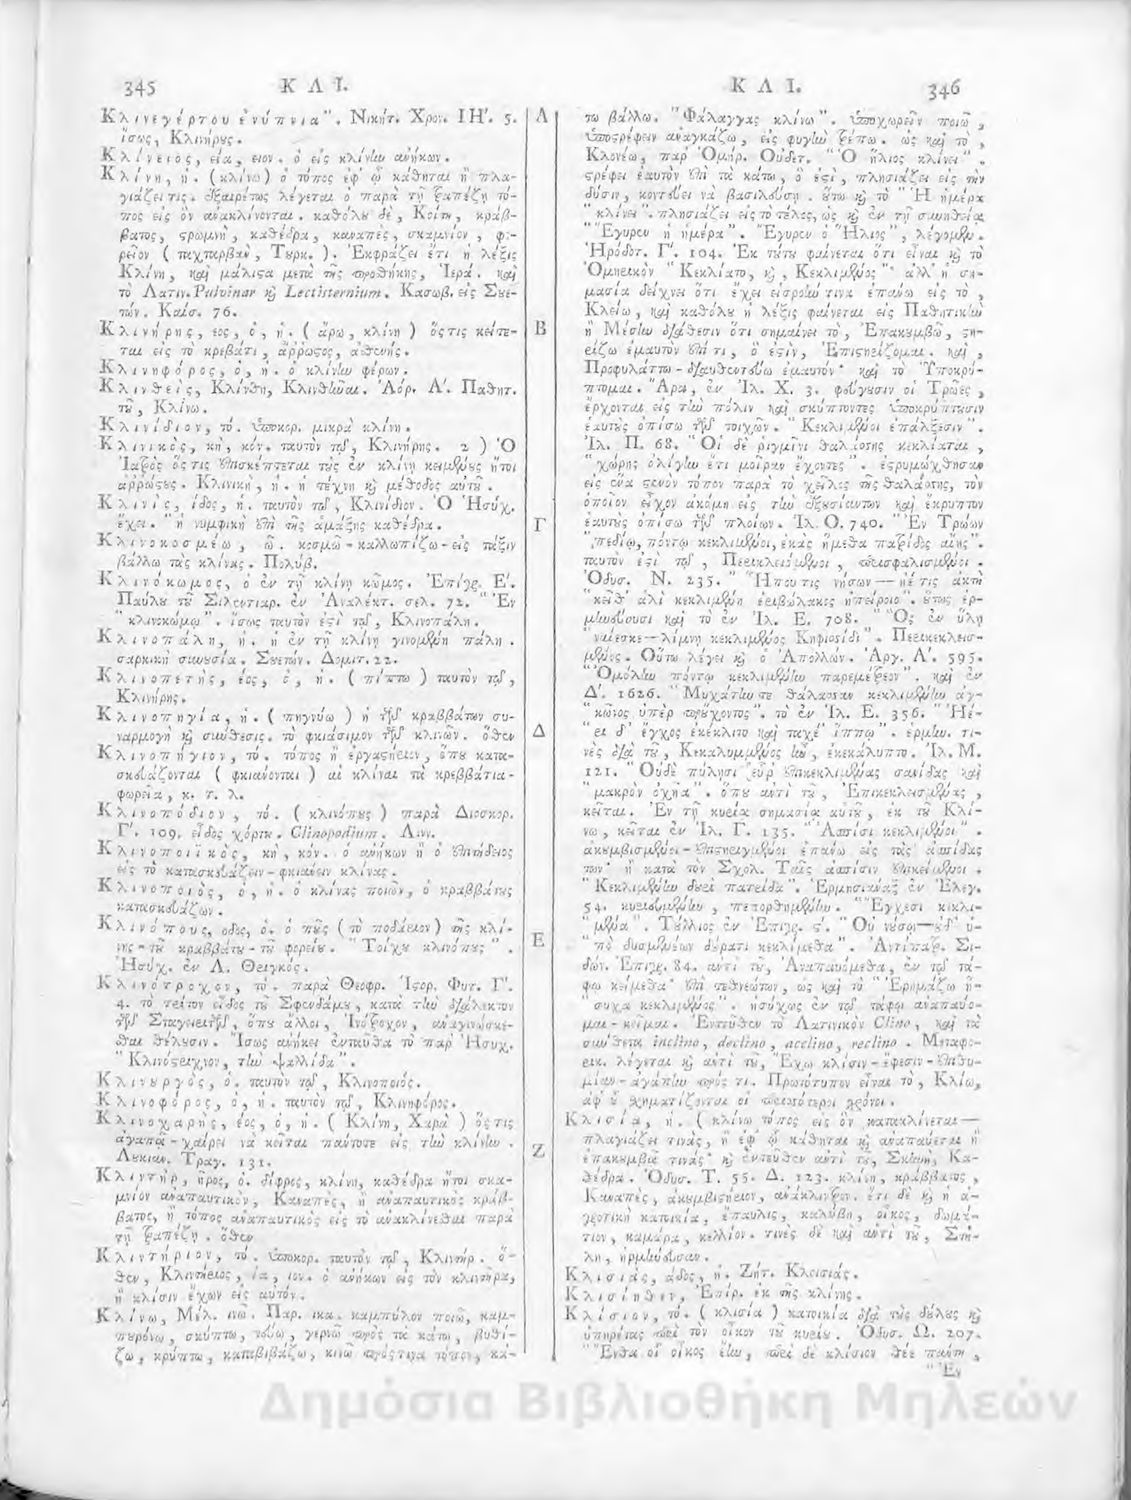 345 Κ Λ Ϊ.
Κλινεγέρτου ἐνύπνια". Νικήτ. Χρον. ΙΗ'. 5.
ἴσως, Κλινήρης.
Κλίνειος, εία, ειον. ὁ εἰς κλίνην ἀνήκων.
Κλίνη, ἡ. (κλίνω) ὁ τόπος ἐφ' ᾧ κάθηται ἢ πλα-
γιάζει τις. ἐξαιρέτως λέγεται ὁ παρὰ τῇ τραπέζῃ τό-
πος εἰς ὃν ἀνακλίνονται. καθόλου δὲ, Κοίτη, κράβ-
βατος, στρωμνὴ, καθέδρα, καναπὲς, σκαμνίον, φο-
ρεῖον ( ταχταρβὰν, Τουρκ. ). Ἐκφράζει ἔτι ἡ λέξις
Κλίνη, καὶ μάλιστα μετὰ τῆς προσθήκης, Ἱερά. καὶ
τὸ Λατιν. Pulvinar καὶ Lectisternium. Κασωβ. εἰς Σουε-
τών. Καίσ. 76.
Κλινήρης, εος, ὁ, ἡ. ( ἄρω, κλίνη ) ὅστις κεῖτε-
ται εἰς τὸ κρεβάτι, ἄῤῥωστος, ἀσθενής.
Κλινηφόρος, ὁ, ἡ. ὁ κλίνην φέρων.
Κλινθεὶς, Κλίνθη, Κλινθῆναι. Ἀόρ. Α'. Παθητ.
τοῦ, Κλίνω.
Κλινίδιον, τό. ὑποκορ. μικρὰ κλίνη.
Κλινικὸς, κὴ, κόν. ταυτὸν τῷ, Κλινήρης. 2 ) Ὁ
Ἰατρὸς ὅστις ἐπισκέπτεται τοὺς ἐν κλίνῃ κειμένους ἤτοι
ἀῤῥώστους. Κλινικὴ, ἡ. ἡ τέχνη καὶ μέθοδος αὐτοῦ.
Κλινὶς, ίδος, ἡ. ταυτὸν τῷ, Κλινίδιον. Ὁ Ἡσύχ.
ἔχει. "ἡ νυμφικὴ ἐπὶ τῆς ἁμάξης καθέδρα.
Κλινοκοσμέω, ῶ. κοσμῶ-καλλωπίζω-εἰς τάξιν
βάλλω τὰς κλίνας. Πολύβ.
Κλινόκωμος, ὁ ἐν τῇ κλίνῃ κῶμος. Ἐπίγρ. Ε'.
Παύλου τοῦ Σιλεντιαρ. ἐν Ἀναλέκτ. σελ. 72. "Ἐν
"κλινοκώμῳ". ἴσως ταυτὸν ἐστὶ τῷ, Κλινοπάλη.
Κλινοπάλη, ἡ. ἡ ἐν τῇ κλίνῃ γινομένη πάλη.
σαρκικὴ συνουσία. Σουετών. Δομιτ. 22.
Κλινοπετὴς, έος, ὁ, ἡ. ( πίπτω ) ταυτὸν τῷ,
Κλινήρης.
Κλινοπηγία, ἡ. ( πηγνύω ) ἡ τῶν κραββάτων συ-
ναρμογὴ καὶ σύνθεσις. τὸ φκιάσιμον τῶν κλινῶν. ὅθεν
Κλινοπήγιον, τό. τόπος ἢ ἐργαστήριον, ὅπου κατα-
σκευάζονται ( φκιάνονται ) αἱ κλίναι τὰ κρεββάτια-
φορεῖα, κ. τ. λ.
Κλινοπόδιον, τό. ( κλινόπους ) παρὰ Διοσκορ.
Γ'. 109. εἶδος χόρτου. Clinopodium. Λινν.
Κλινοποιϊκὸς, κὴ, κόν. ὁ ἀνήκων ἢ ὁ ἐπιτήδειος
εἰς τὸ κατασκευάζειν-φκιάνειν κλίνας.
Κλινοποιὸς, ὁ, ἡ. ὁ κλίνας ποιῶν, ὁ κραββάτους
κατασκευάζων.
Κλινόπους, οδος, ὁ. ὁ ποὺς ( τὸ ποδάριον ) τῆς κλί-
νης-τοῦ κραββάτου-τοῦ φορείου. "Τοίχου κλινόπους".
Ἡσύχ. ἐν Λ. Θριγκός.
Κλινότροχον, τό. παρὰ Θεοφρ. Ἱστορ. Φυτ. Γ'.
4. τὸ τρίτον εἶδος τοῦ Σφενδάμου, κατὰ τὴν διάλεκτον
τῶν Σταγειριτῶν, ὅπου ἄλλοι, Ἰνότροχον, ἀναγινώσκε-
σθαι θέλουσιν. Ἴσως ἀνήκει ἐνταῦθα τὸ παρ' Ἡσυχ.
"Κλινόστειχνον, τὴν ψαλλίδα".
Κλινουργὸς, ὁ. ταυτὸν τῷ, Κλινοποιός.
Κλινοφόρος, ὁ, ἡ. ταυτὸν τῷ, Κλινηφόρος.
Κλινοχαρὴς, έος, ὁ, ἡ. ( Κλίνη, Χαρὰ ) ὅστις
ἀγαπᾷ-χαίρει νὰ κεῖται πάντοτε εἰς τὴν κλίνην.
Λουκιαν. Τραγ. 131.
Κλιντὴρ, ῆρος, ὁ. δίφρος, κλίνη, καθέδρα ἤτοι σκα-
μνίον ἀναπαυτικὸν, Καναπὲς, ἢ ἀναπαυτικὸς κράβ-
βατος, ἢ τόπος ἀναπαυτικὸς εἰς τὸ ἀνακλίνεσθαι παρὰ
τῇ τραπέζῃ. ὅθεν
Κλιντήριον, τό. ὑποκορ. ταυτὸν τῷ, Κλιντήρ. ὅ-
θεν, Κλιντήριος, ία, ιον. ὁ ἀνήκων εἰς τὸν κλιντῆρα,
ἢ κλίσιν ἔχων εἰς αὐτόν.
Κλίνω, Μέλ. ινῶ. Παρ. ικα. καμπύλον ποιῶ, καμ-
πυρόνω, σκύπτω, νεύω, γέρνω πρὸς τὰ κάτω, βυθί-
ζω, κρύπτω, καταβιβάζω, κινῶ πρός τινα τόπον, κά-
Α
Β
Γ
Δ
Ε
Ζ
Κ Λ Ι. 346
τω βάλλω. "Φάλαγγας κλίνω". ὑποχωρεῖν ποιῶ,
ὑποστρέφειν ἀναγκάζω, εἰς φυγὴν τρέπω. ὡς καὶ τὸ,
Κλονέω, παρ' Ὁμήρ. Οὐδετ. "Ὁ ἥλιος κλίνει".
στρέφει ἑαυτὸν ἐπὶ τὰ κάτω, ὅ ἐστι, πλησιάζει εἰς τὴν
δύσιν, κοντεύει νὰ βασιλεύσῃ. οὕτω καὶ τὸ "Ἡ ἡμέρα
"κλίνει". πλησιάζει εἰς τὸ τέλος, ὡς καὶ ἐν τῇ συνηθείᾳ
"Ἔγυρεν ἡ ἡμέρα". "Ἔγυρεν ὁ Ἥλιος", λέγομεν.
Ἡρόδοτ. Γ'. 104. Ἐκ τούτου φαίνεται ὅτι εἶναι καὶ τὸ
Ὁμηρικὸν "Κεκλίατο, καὶ, Κεκλιμένος" ἀλλ' ἡ ση-
μασία δείχνει ὅτι ἔχει εἰσροήν τινα ἐπάνω εἰς τὸ,
Κλείω, καὶ καθόλου ἡ λέξις φαίνεται εἰς Παθητικὴν
ἢ Μέσην διάθεσιν ὅτι σημαίνει τὸ, Ἐπακουμβῶ, στη-
ρίζω ἐμαυτὸν ἐπί τι, ὅ ἐστιν, Ἐπιστηρίζομαι. καὶ,
Προφυλάττω-διαυθεντεύω ἐμαυτόν· καὶ τὸ Ὑποκρύ-
πτομαι. "Ἄρα, ἐν Ἰλ. Χ. 3. φεύγουσιν οἱ Τρῶες,
ἔρχονται εἰς τὴν πόλιν καὶ σκύπτοντες ὑποκρύπτουσιν
ἑαυτοὺς ὀπίσω τῶν τοιχῶν. "Κεκλιμένοι ἐπάλξεσιν".
Ἰλ. Π. 68. "Οἱ δὲ ῥιγμῖνι θαλάσσης κεκλίαται,
"χώρης ὀλίγην ἔτι μοῖραν ἔχοντες". ἐστρυμώχθησαν
εἰς ἕνα στενὸν τόπον παρὰ τὸ χεῖλος τῆς θαλάσσης, τὸν
ὁποῖον εἶχον ἀκόμη εἰς τὴν ἐξουσίαν των καὶ ἔκρυπτον
ἑαυτοὺς ὀπίσω τῶν πλοίων. Ἰλ. Ο. 740. "Ἐν Τρώων
"πεδίῳ, πόντῳ κεκλιμένοι, ἑκὰς ἥμεθα πατρίδος αἴης".
ταυτὸν ἐστὶ τῷ, Περικλειόμενοι, περιασφαλισμένοι.
Ὀδυσ. Ν. 235. "Ἤπου τις νήσων—ἠέ τις ἀκτὴ
"κεῖθ' ἁλὶ κεκλιμένη ἐριβώλακος ἠπείροιο". οὕτως ἑρ-
μηνεύουσι καὶ τὸ ἐν Ἰλ. Ε. 708. "Ὅς ἐν ὕλῃ
"ναίεσκε—λίμνῃ κεκλιμένος Κηφισίδι". Περικεκλεισ-
μένος. Οὕτω λέγει καὶ ὁ Ἀπολλών. Ἀργ. Α'. 595.
"Ὁμόλην πόντῳ κεκλιμένην παρεμέτρεον". καὶ ἐν
Δ'. 1626. "Μυχάτην τε θάλασσαν κεκλιμένην ἀγ-
"κῶνος ὑπὲρ προὔχοντος". τὸ ἐν Ἰλ. Ε. 356. "Ἠέ-
"ρι δ' ἔγχος ἐκέκλιτο καὶ ταχέ' ἵππω". ἑρμην. τι-
νὲς διὰ τοῦ, Κεκαλυμμένος ἦν, ἐκεκάλυπτο. Ἰλ. Μ.
121. "Οὐδὲ πύλῃσι "εὗρ' ἐπικεκλιμένας σανίδας καὶ
"μακρὸν ὀχῆα". ὅπου ἀντὶ τοῦ, Ἐπικεκλεισμένας,
κεῖται. Ἐν τῇ κυρίᾳ σημασίᾳ αὐτοῦ, ἐκ τοῦ Κλί-
νω, κεῖται ἐν Ἰλ. Γ. 135. "Ἀσπίσι κεκλιμένοι".
ἀκουμβισμένοι-ἐπιστηριγμένοι ἐπάνω εἰς τὰς ἀσπίδας
των ἢ κατὰ τὸν Σχολ. Ταῖς ἀσπίσιν ἐπικείμενοι.
"Κεκλιμένην δουρὶ πατρίδα". Ἑρμησιάναξ ἐν Ἐλεγ.
54. κυριευμένην, πεπορθημένην. "Ἔγχεσι κεκλι-
"μένα". Τύλλιος ἐν Ἐπιγρ. ϛ'. "Οὐ νούσῳ—οὐδ' ὑ-
"πὸ δυσμενέων δούρατι κεκλίμεθα". Ἀντίπατρ. Σι-
δών. Ἐπιγρ. 84. ἀντὶ τοῦ, Ἀναπαυόμεθα, ἐν τῷ τά-
φῳ κείμεθα· ἐπὶ τεθνεώτων, ὡς καὶ τὸ "Ἐρημάζω ἥ-
"συχα κεκλιμένος". ἡσύχως ἐν τῷ τάφῳ ἀναπαύο-
μαι-κεῖμαι. Ἐντεῦθεν τὸ Λατινικὸν Clino, καὶ τὰ
σύνθετα inclino, declino, acclino, reclino. Μεταφο-
ρικ. λέγεται καὶ ἀντὶ τοῦ, Ἔχω κλίσιν-ἔφεσιν-ἐπιθυ-
μίαν-ἀγάπην πρός τι. Πρωτότυπον εἶναι τὸ, Κλίω,
ἀφ' οὗ σχηματίζονται οἱ περισσότεροι χρόνοι.
Κλισία, ἡ. ( κλίνω τόπος εἰς ὃν κατακλίνεται—
πλαγιάζει τινὰς, ἢ ἐφ' ᾧ κάθηται καὶ ἀναπαύεται ἢ
ἐπακουμβᾷ τινάς· καὶ ἐντεῦθεν ἀντὶ τοῦ, Σκηνὴ, Κα-
θέδρα. Ὀδυσ. Τ. 55. Δ. 123. κλίνη, κράββατος,
Καναπὲς, ἀκουμβιστήριον, ἀνάκλιντρον. ἔτι δὲ καὶ ἡ ἀ-
γροτικὴ κατοικία, ἔπαυλις, καλύβη, οἶκος, δωμά-
τιον, καμάρα, κελλίον. τινὲς δὲ καὶ ἀντὶ τοῦ, Στή-
λη, ἡρμήνευσαν.
Κλισιὰς, άδος, ἡ. Ζήτ. Κλεισιάς.
Κλισίηθεν, Ἐπίρ. ἐκ τῆς κλίνης.
Κλίσιον, τό. ( κλισία ) κατοικία διὰ τοὺς δούλους καὶ
ὑπηρέτας περὶ τὸν οἶκον τοῦ κυρίου. Ὀδυσ. Ω. 207.
"Ἔνθα οἱ οἶκος ἔην, περὶ δὲ κλίσιον θέε πάντη,
"Ἐν
Δημόσια Βιβλιοθήκη Μηλεών